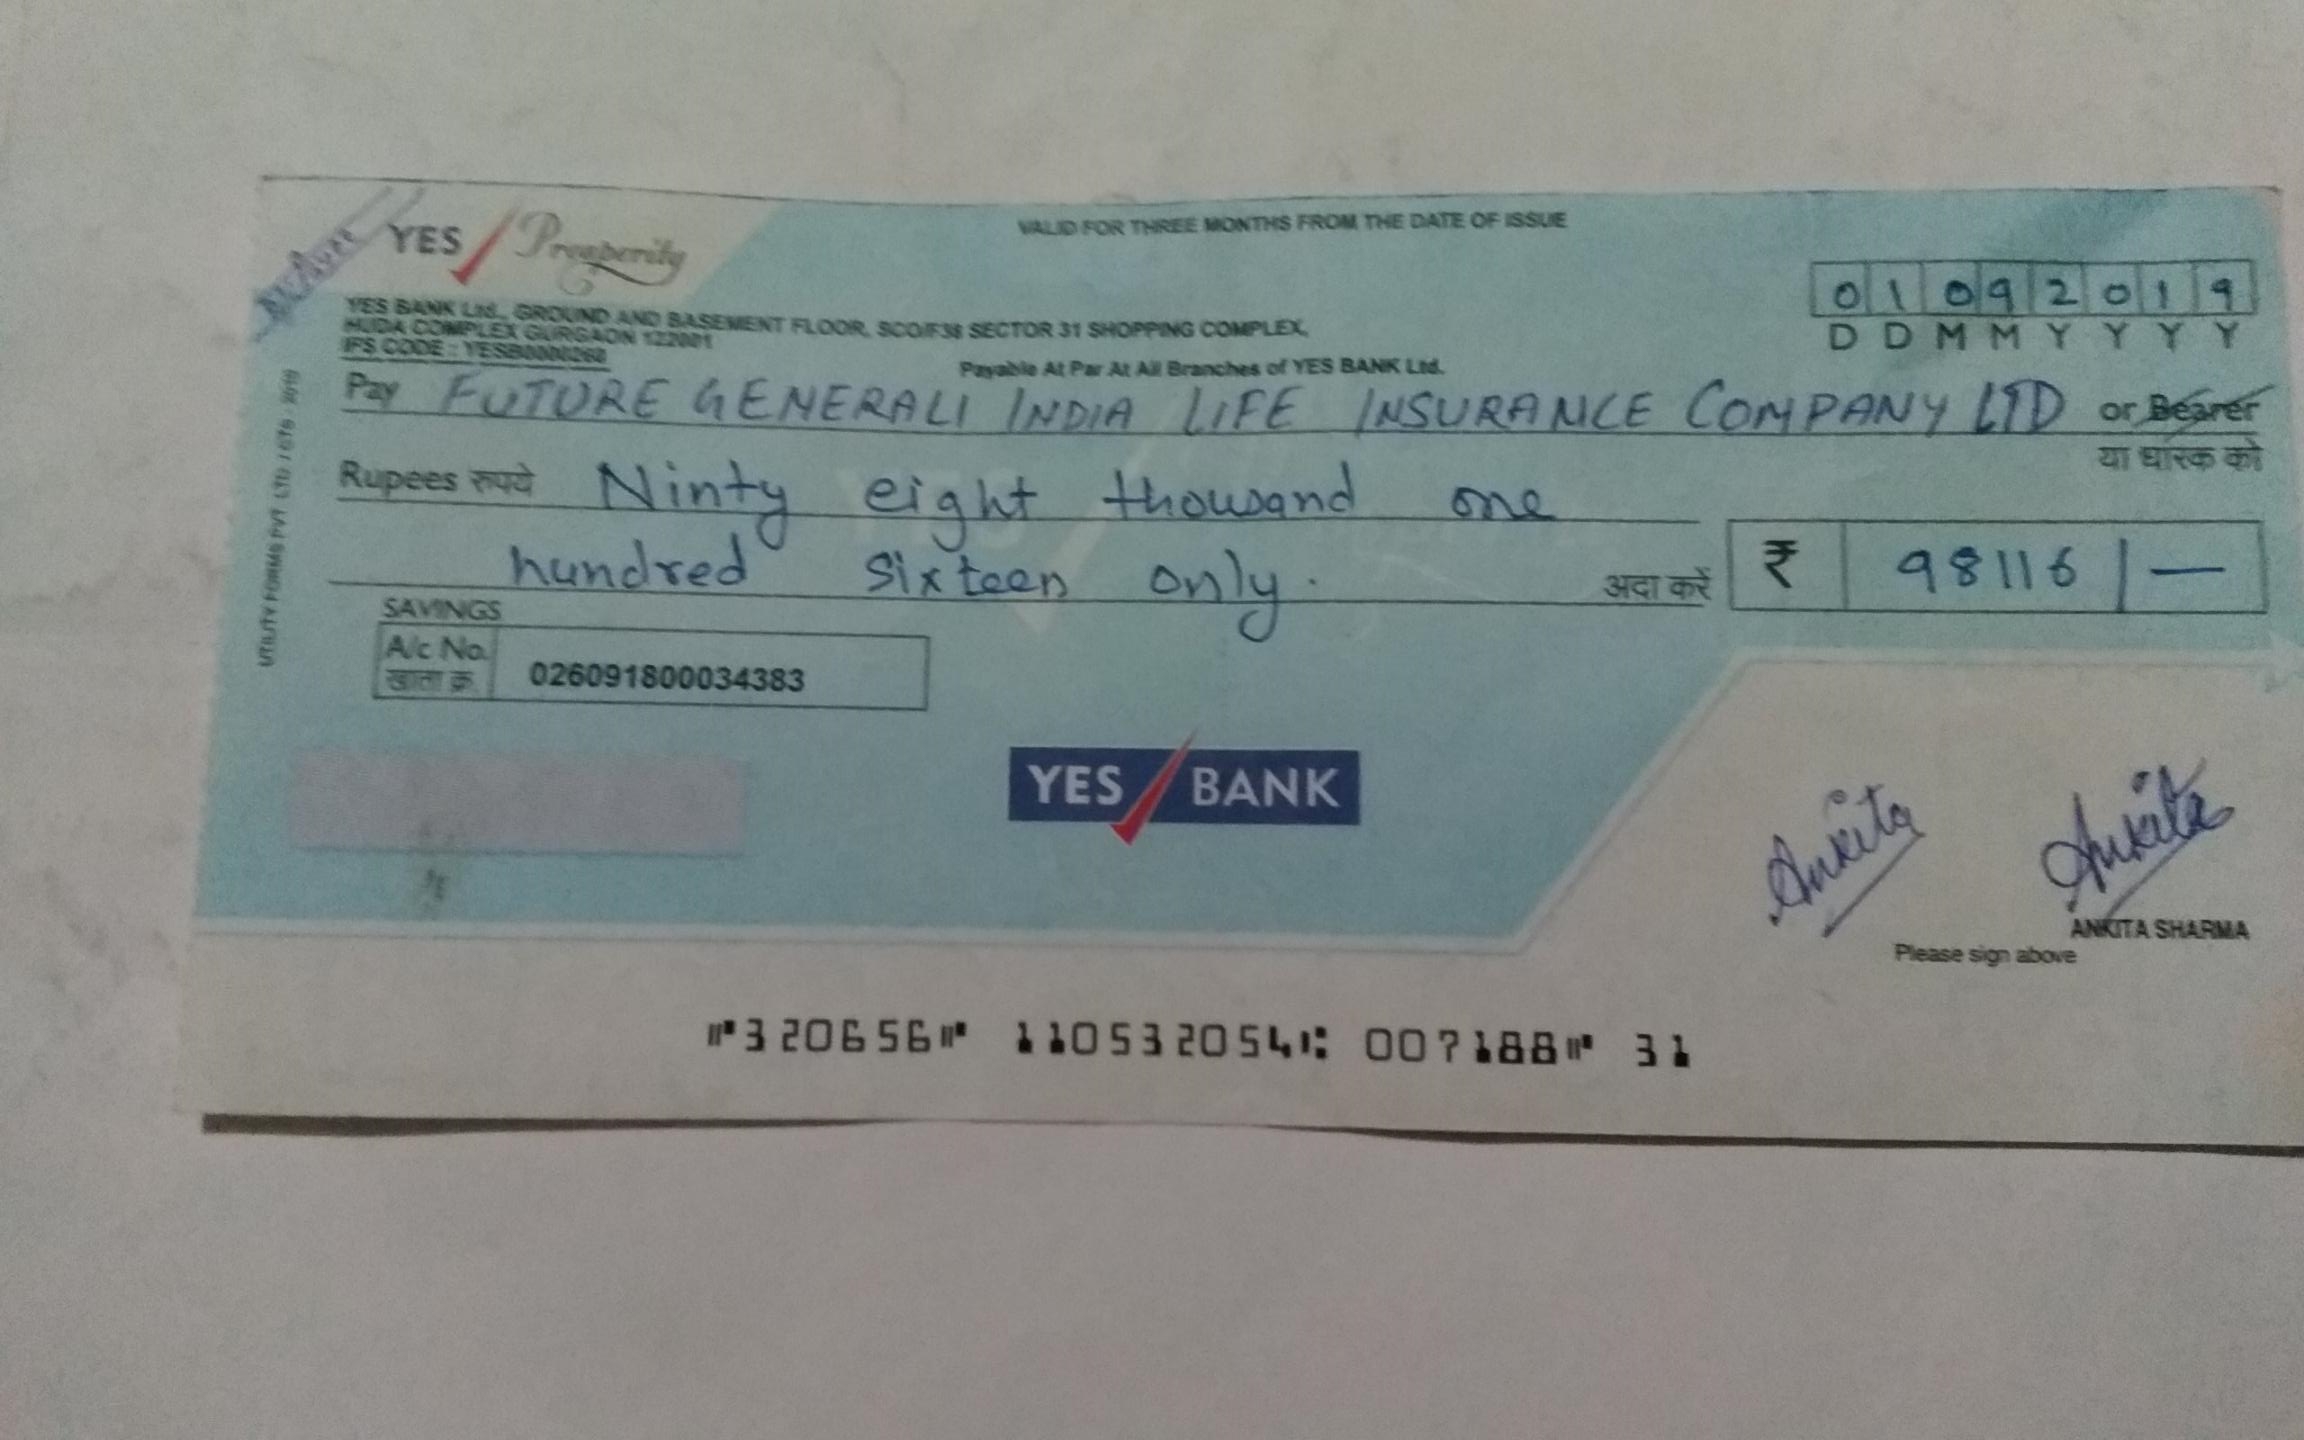 A/c Payee
YES Prosperity
VALID FOR THREE MONTHS FROM THE DATE OF ISSUE
YES BANK Ltd., GROUND AND BASEMENT FLOOR, SCO/F38 SECTOR 31 SHOPPING COMPLEX,
HUDA COMPLEX GURGAON 122001
IFS CODE : YESB0000260
Payable At Par At All Branches of YES BANK Ltd.
01092019
D D M M Y Y Y Y
Pay FUTURE GENERALI INDIA LIFE INSURANCE COMPANY LTD or Bearer
या धारक को
Rupees रुपये Ninty eight thousand one
hundred sixteen only. अदा करें ₹ 98116/-
SAVINGS
A/c No. 026091800034383
खाता क्र.
UTILITY FORMS PVT LTD / CTS - 2010
YES BANK
Ankita Ankita
ANKITA SHARMA
Please sign above
⑈320656⑈ 110532054⑆ 007188⑈ 31